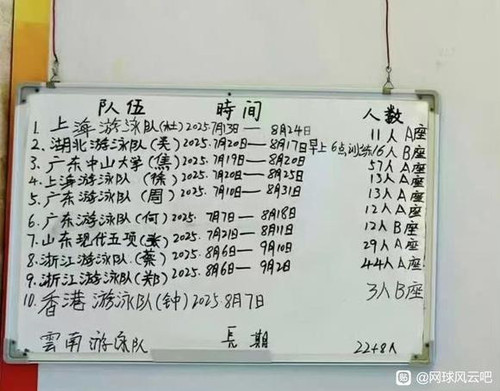 队伍 時间 人数
1. 上海游泳队(杜) 2025.7月13日— 8月24日 11人 A座
2. 湖北游泳队(吴) 2025.7月20日—8月17日早上6点训练 16人 B座
3. 广东中山大学(焦) 2025.7月19日—8月20日 57人 A座
4. 上海游泳队 (徐) 2025.7月20日—8月25日 13人 A座
5. 广东游泳队(周) 2025.7月10日—8月31日 13人 A座
6. 广东游泳队(何) 2025.7月7日—8月18日 12人 A座
7. 山东现代五项(张) 2025.7月21日—8月11日 12人 B座
8. 浙江游泳队(蔡) 2025.8月6日—9月10日 29人 A座
9. 浙江游泳队(郑) 2025.8月6日—9月2日 44人 A座
10. 香港游泳队(钟) 2025.8月7日 3人 B座
雲南游泳队 長期 22+8人
@网球风云吧